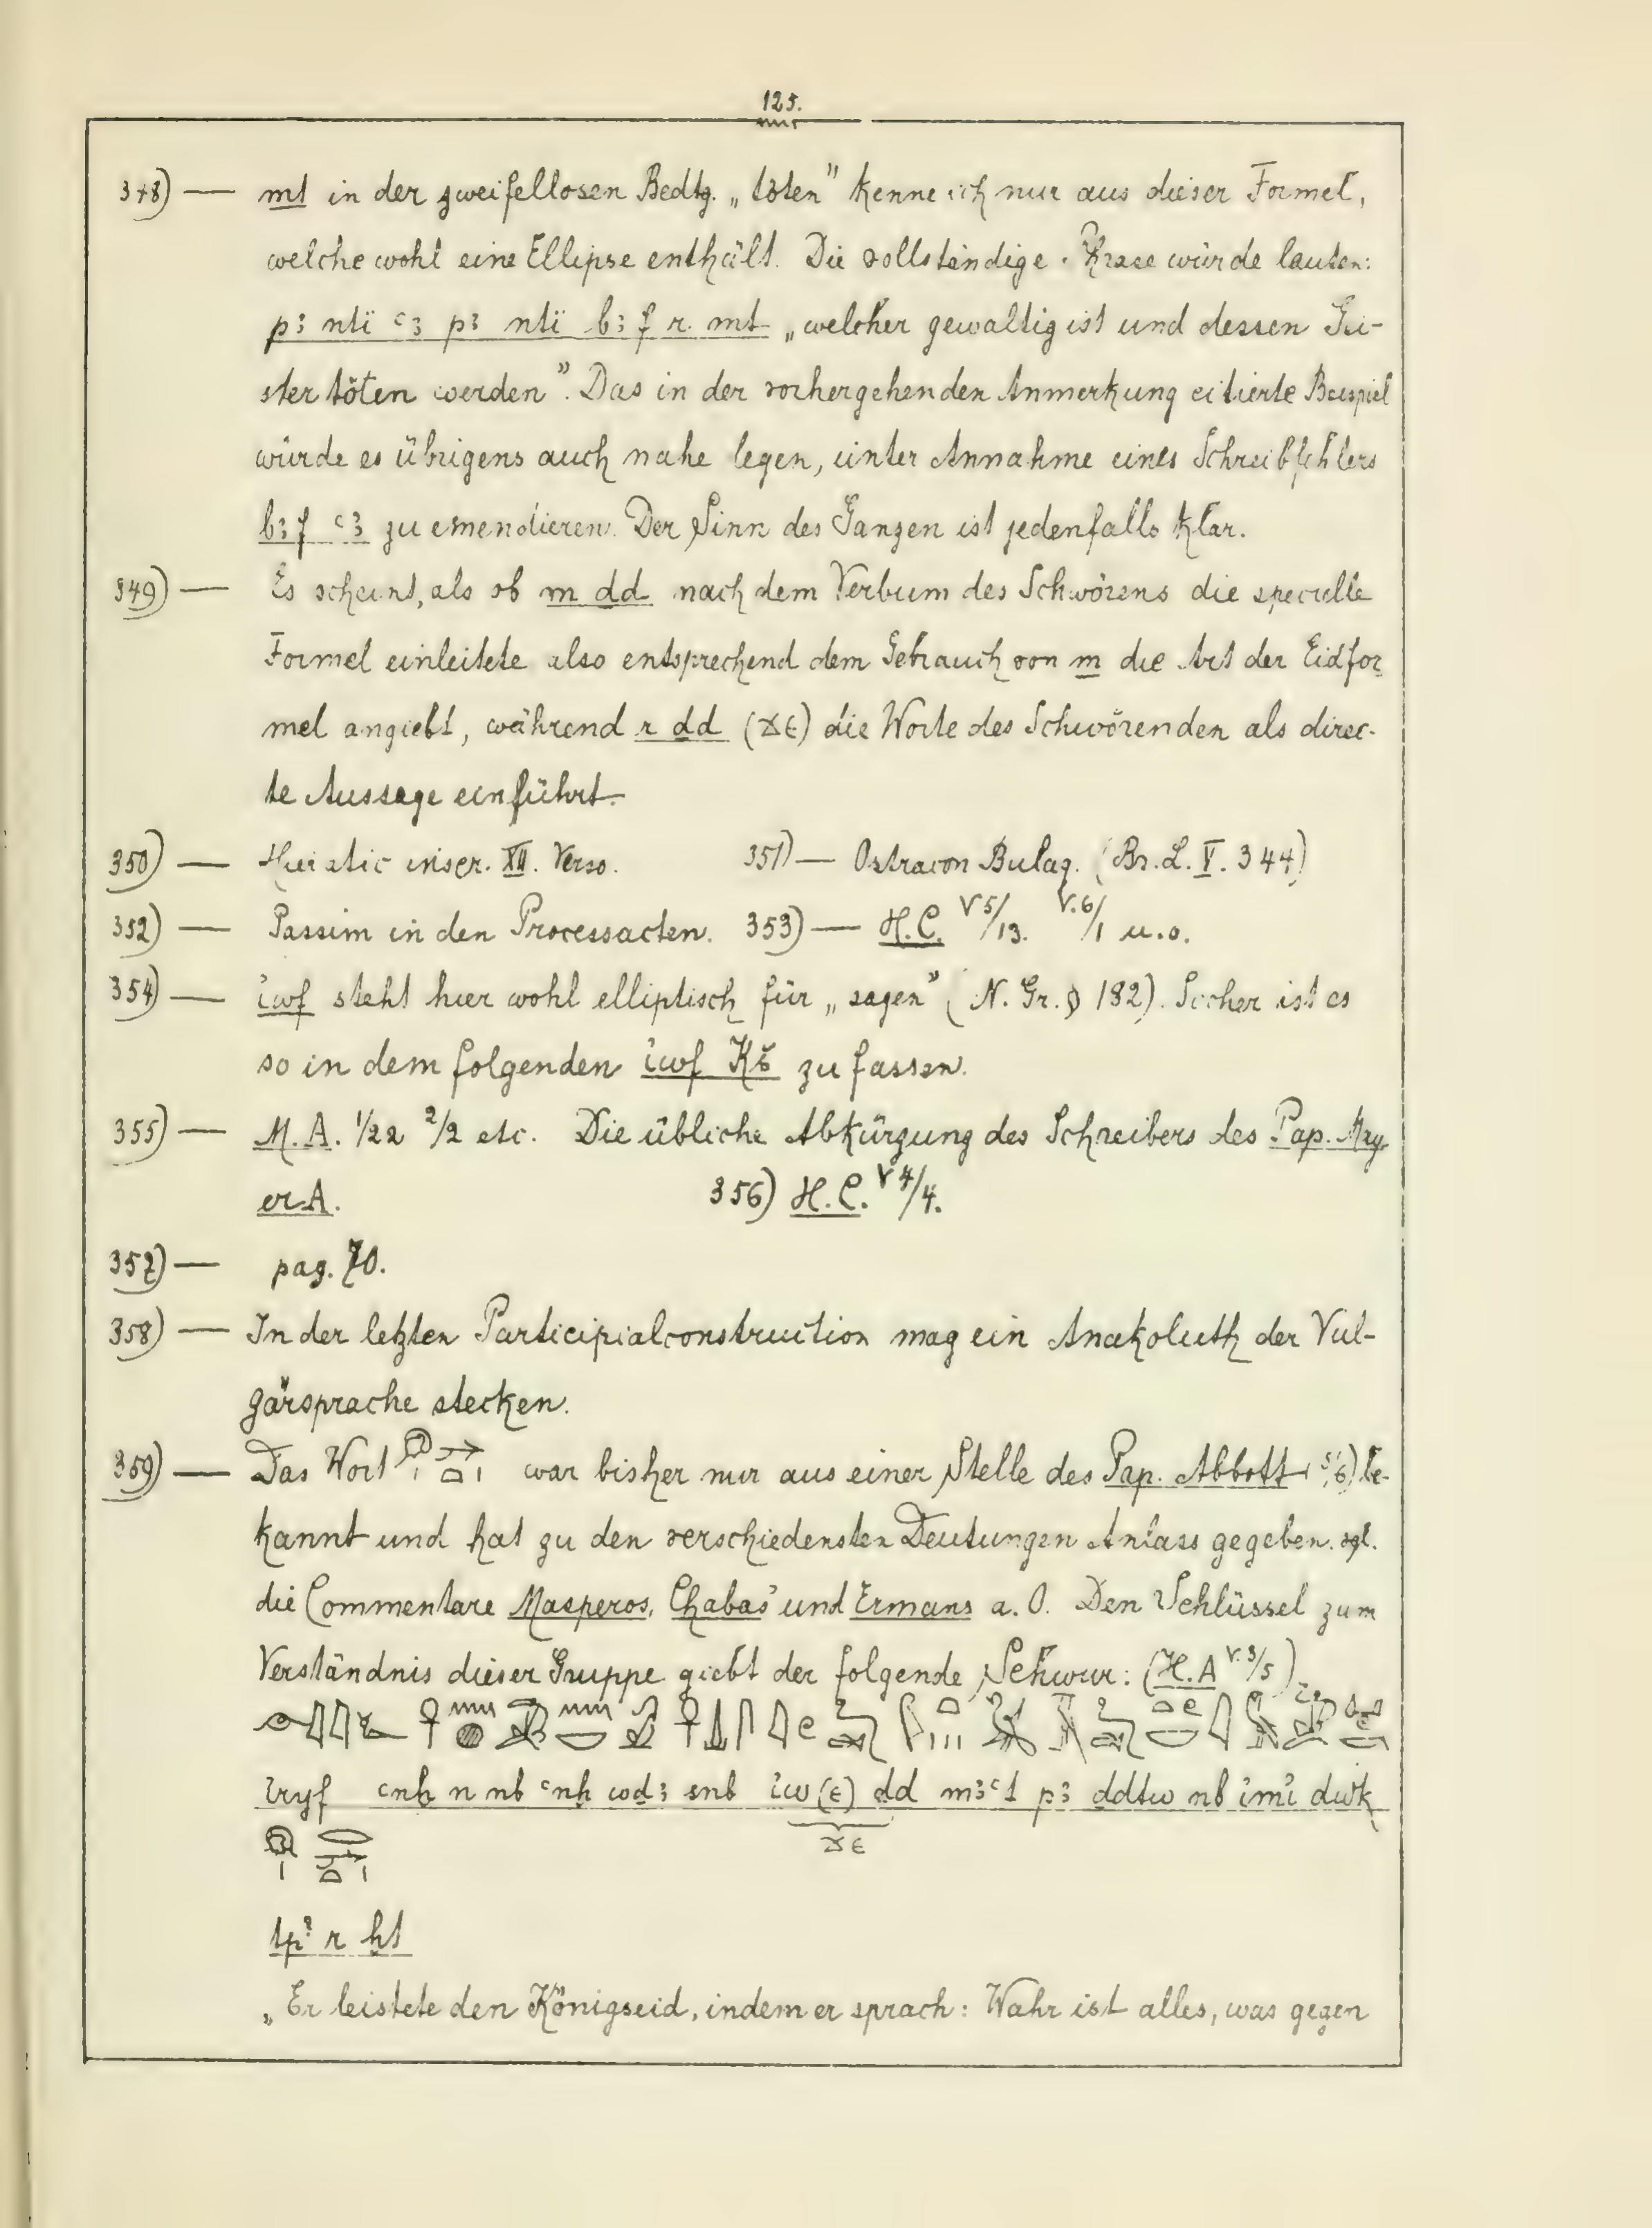 125.
348) — mt in der zweifellosen Bedtg. „töten” kenne ich nur aus dieser Formel,
welche wohl eine Ellipse enthält. Die vollständige Phrase würde lauten:
pꜣ ntï ꜥꜣ pꜣ ntï bꜣf r mt „welcher gewaltig ist und dessen Gei-
ster töten werden”. Das in der vorhergehenden Anmerkung citierte Beispiel
würde es übrigens auch nahe legen, unter Annahme eines Schreibfehlers
bꜣf ꜥꜣ zu emendieren. Der Sinn des Ganzen ist jedenfalls klar.
349) — Es scheint, als ob m dd nach dem Verbum des Schwörens die specielle
Formel einleitete also entsprechend dem Gebrauch von m die Art der Eidfor
mel angiebt, während r dd (ϫⲉ) die Worte des Schwörenden als direc-
te Aussage einführt.
350) — Hieratic inscr. XII. Verso. 351) — Ostracon Bulaq. (Br. L. V. 344)
352) — Passim in den Processacten. 353) — H.C. V 5/13. V. 6/1 u.o.
354) — iwf steht hier wohl elliptisch für „sagen” (N. Gr. § 182). Sicher ist es
so in dem folgenden iwf Kš zu fassen.
355) — M.A. 1/22 2/2 etc. Die übliche Abkürzung des Schreibers des Pap. May
er A. 356) H.C. V 4/4.
357) — pag. 70.
358) — In der letzten Participialconstruction mag ein Anakoluth der Vul-
gärsprache stecken.
359) — Das Wort war bisher nur aus einer Stelle des Pap. Abbott (5/6) be-
kannt und hat zu den verschiedensten Deutungen Anlass gegeben. vgl.
die Commentare Masperos, Chabas' und Ermans a. O. Den Schlüssel zum
Verständnis dieser Gruppe giebt der folgende Schwur: (H.A V. 3/5)
iryf ꜥnḫ n nb ꜥnḫ wdꜣ snb iw (ⲉ) dd mꜣꜥt pꜣ ddtw nb imi dwk
ϫⲉ
tp? r ḫt
„Er leistete den Königseid, indem er sprach: Wahr ist alles, was gegen